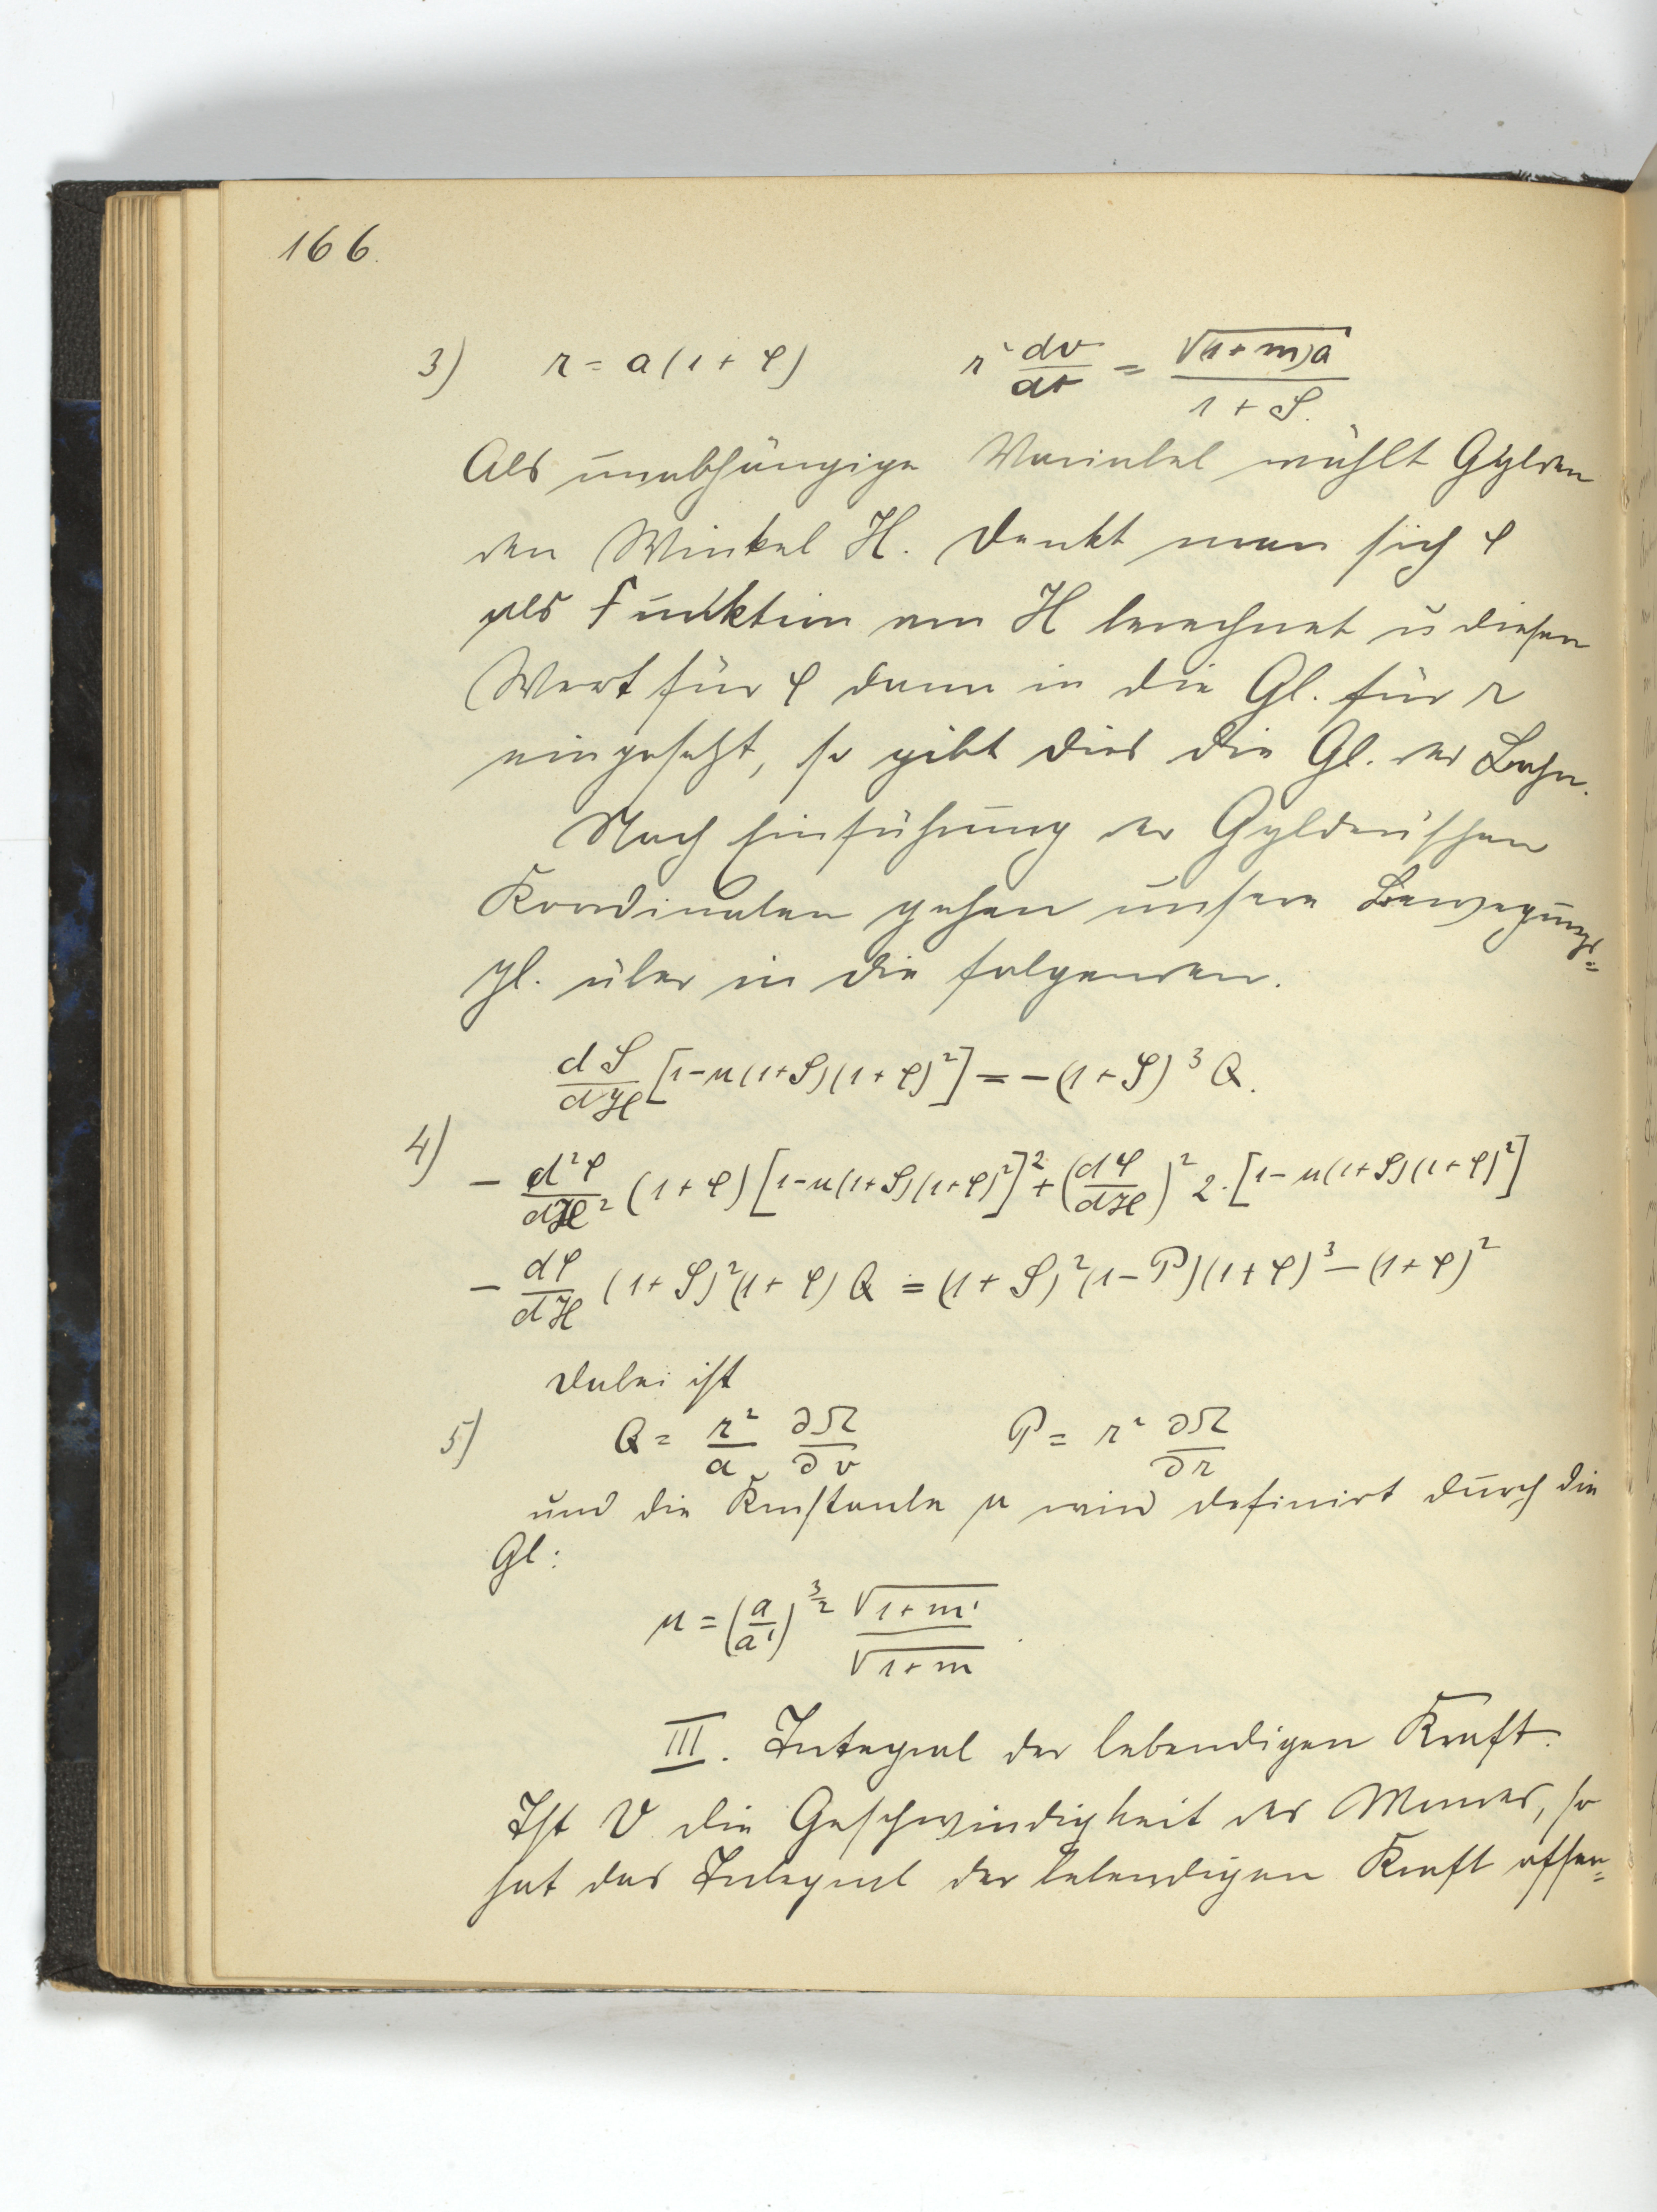 166.
3) r = a(1+φ) r² dv/dt = √(1+m)a / 1+S.
Als unabhängige Variabel wählt Gylden
den Winkel H. Denkt man sich φ
als Funktion von H berechnet u diesen
Wert für φ dann in die Gl. für r
eingesetzt, so gibt dies die Gl. der Bahn.
Nach Einführung der Gylden'schen
Koordinaten gehen unsere Bewegungs=
gl. über in die folgenden.
dS/dH [1-μ(1+S)(1+φ)²] = -(1+S)³ Q.
4) - d²φ/dH² (1+φ)[1-μ(1+S)(1+φ)²]² + (dφ/dH)² 2·[1-μ(1+S)(1+φ)²]
- dφ/dH (1+S)²(1+φ) Q = (1+S)²(1-P)(1+φ)³ - (1+φ)²
Dabei ist
5) Q = r²/a ∂Ω/∂v P = r² ∂Ω/∂r
und die Konstante μ wird definirt durch die
Gl:
μ = (a/a')^3/2 √1+m' / √1+m.
III. Integral der lebendigen Kraft.
Ist V die Geschwindigkeit des Mondes, so
hat das Integral der lebendigen Kraft offen=